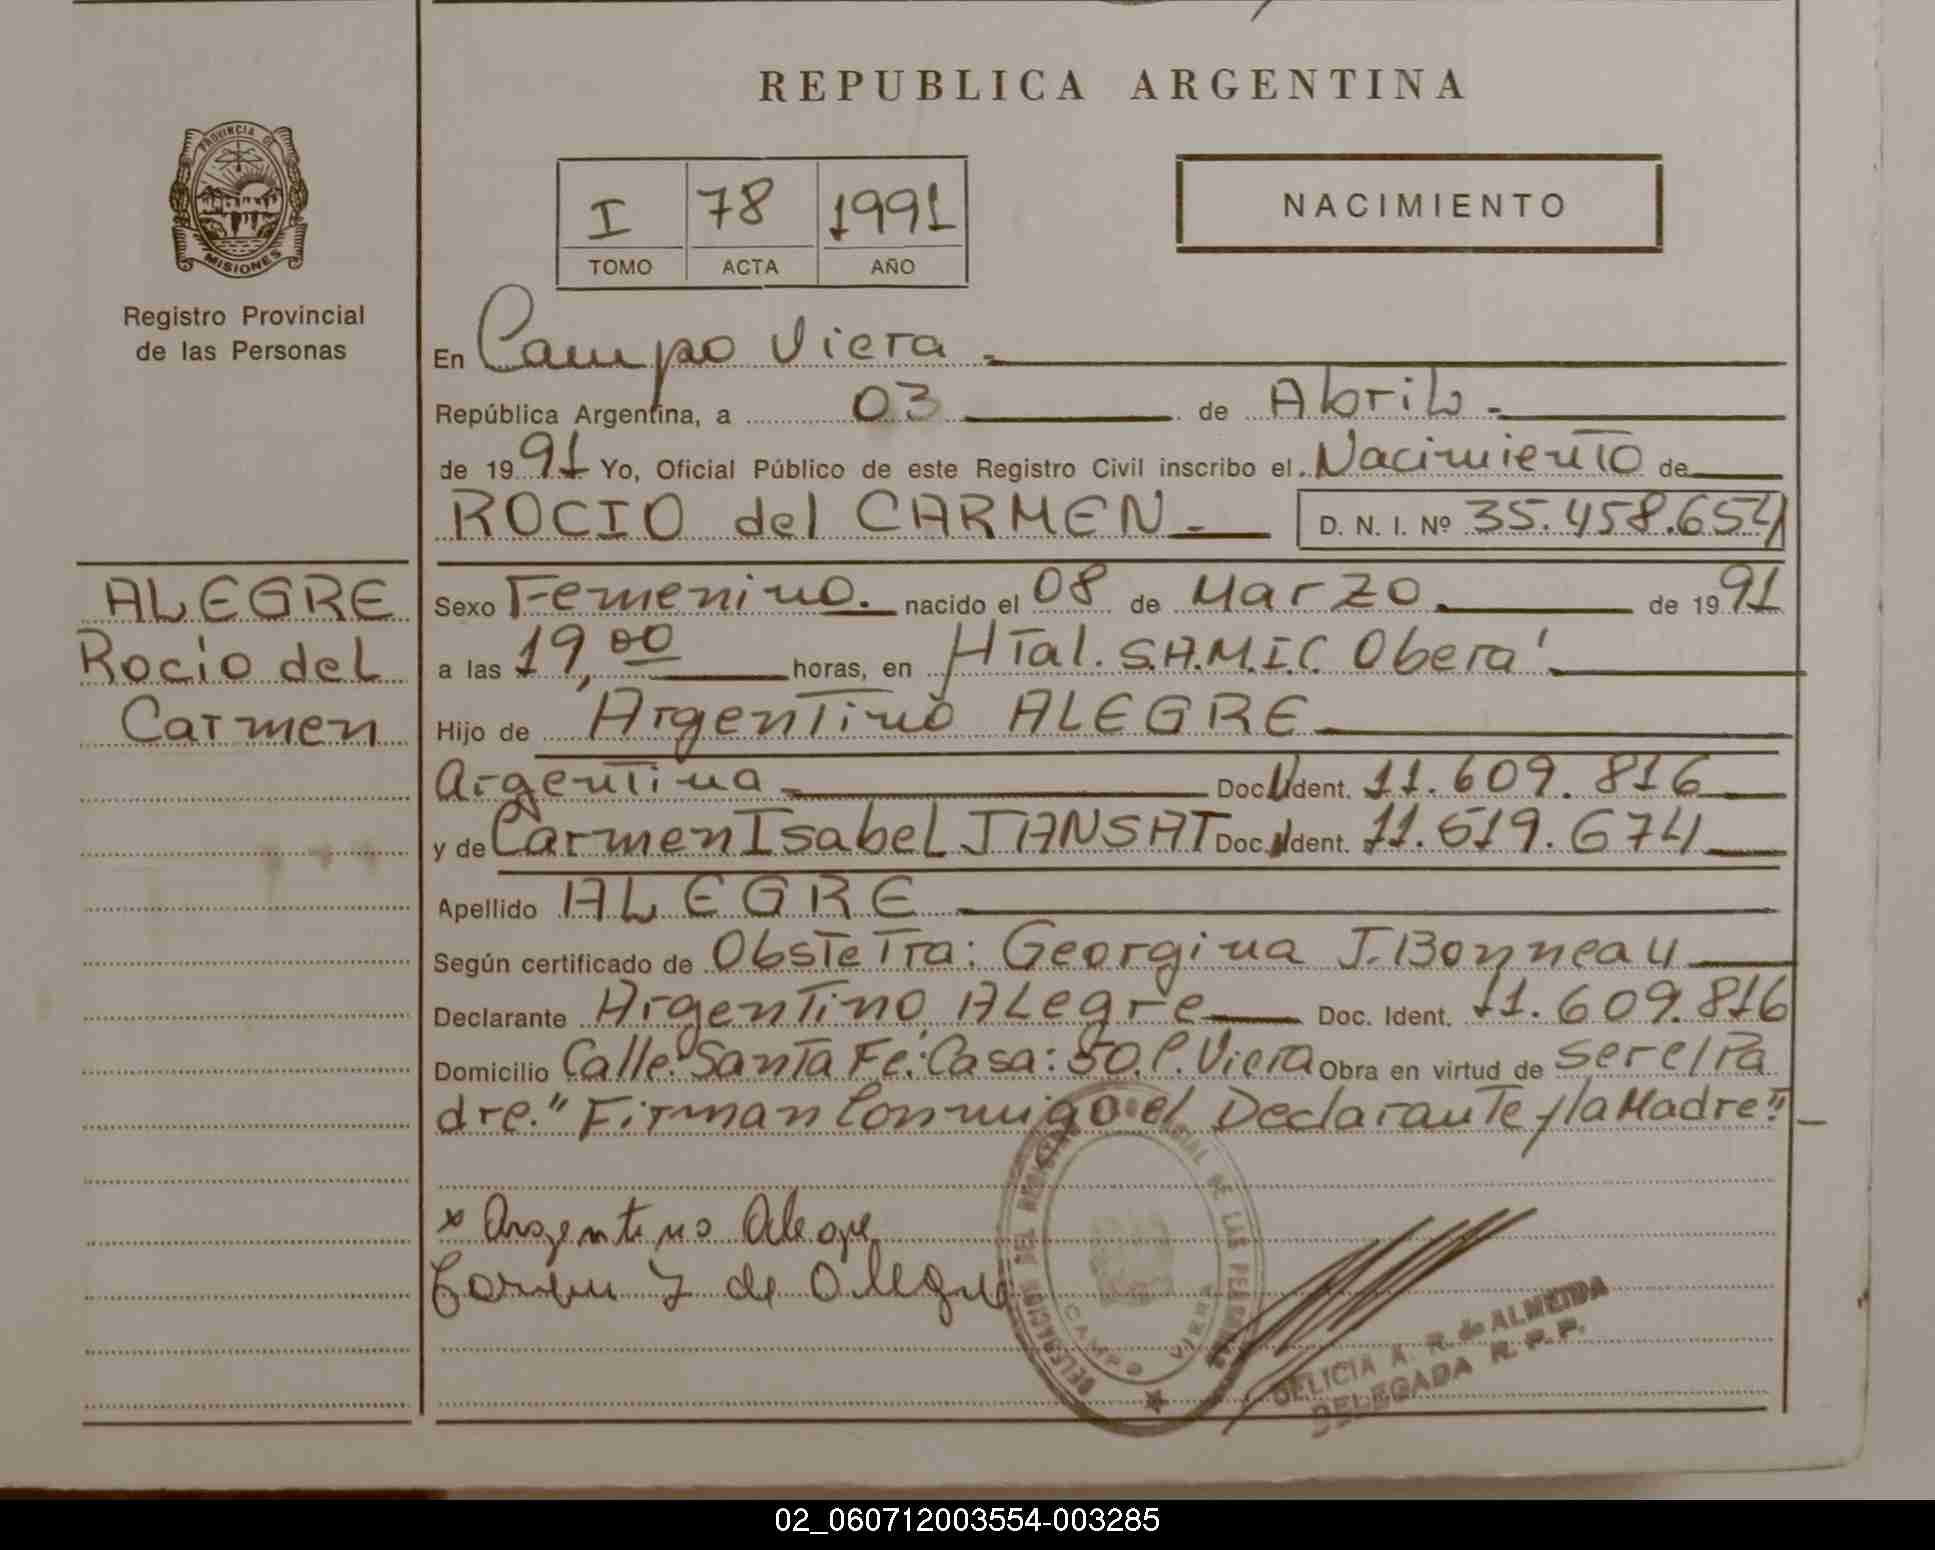 REPUBLICA ARGENTINA
PROVINCIA DE
MISIONES
Registro Provincial
de las Personas
I 78 1991
TOMO ACTA AÑO
NACIMIENTO
En Campo Viera.
República Argentina, a 03 de Abril.
de 1991 Yo, Oficial Público de este Registro Civil inscribo el Nacimiento de
ROCIO del CARMEN. D. N. I. Nº 35.458.654
ALEGRE
Rocio del
Carmen
Sexo Femenino. nacido el 08 de Marzo. de 1991
a las 19,00 horas, en HTal. S.A.M.I.C. Oberá.
Hijo de Argentino ALEGRE
Argentina Doc. Ident. 11.609.816
y de Carmen Isabel JANSAT Doc. Ident. 11.619.674
Apellido ALEGRE
Según certificado de Obstetra: Georgina J. Bonneau
Declarante Argentino ALegre Doc. Ident. 11.609.816
Domicilio Calle: Santa Fe: Casa: 50. C. Viera Obra en virtud de ser el Pa
dre." Firman Conmigo el Declarante y la Madre"
x Argentino Alegre
Carmen J de Alegre
DELEGACION DEL REGISTRO PROVINCIAL DE LAS PERSONAS
CAMPO VIERA
DELICIA A. R. de ALMEIDA
DELEGADA R. P. P.
02_060712003554-003285